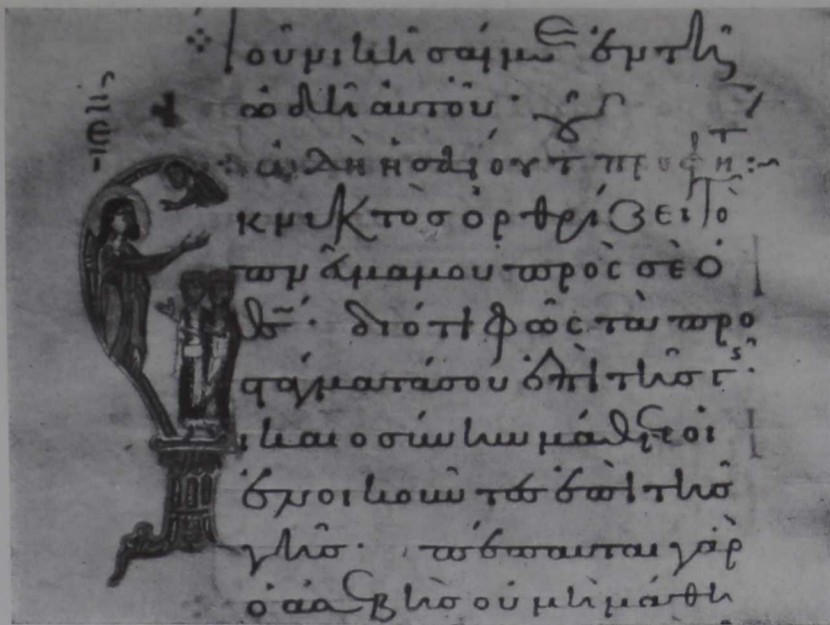 τοῦ νικῆσαί με ἐν τῇ
ὠδῆ αὐτοῦ·
ὠδὴ ἠσαΐου τ προφη:~
Ἐκ νυκτὸσ ὀρθρίζει τὸ
πνᾶ μου πρὸς σὲ ὁ
θς̄· διότι φῶς τὰ προ
στάγματά σου ἐπὶ τῆς γ·
δικαιοσύνην μάθετε οἱ
ἐνοικοῦντες ἐπὶ τῆς
γῆς· πέπαυται γὰρ
ὁ ἀσεβὴς οὐ μὴ μάθη